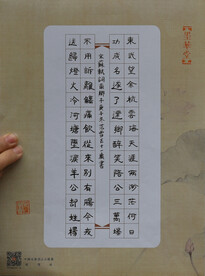 東武望余杭雲海天涯兩杳茫何日
功成名遂了還鄉醉笑陪公三萬場
蘇軾詞南鄉子
不用訴離觴痛飲從來別有腸今夜
送歸燈火冷河塘墮淚羊公却姓楊